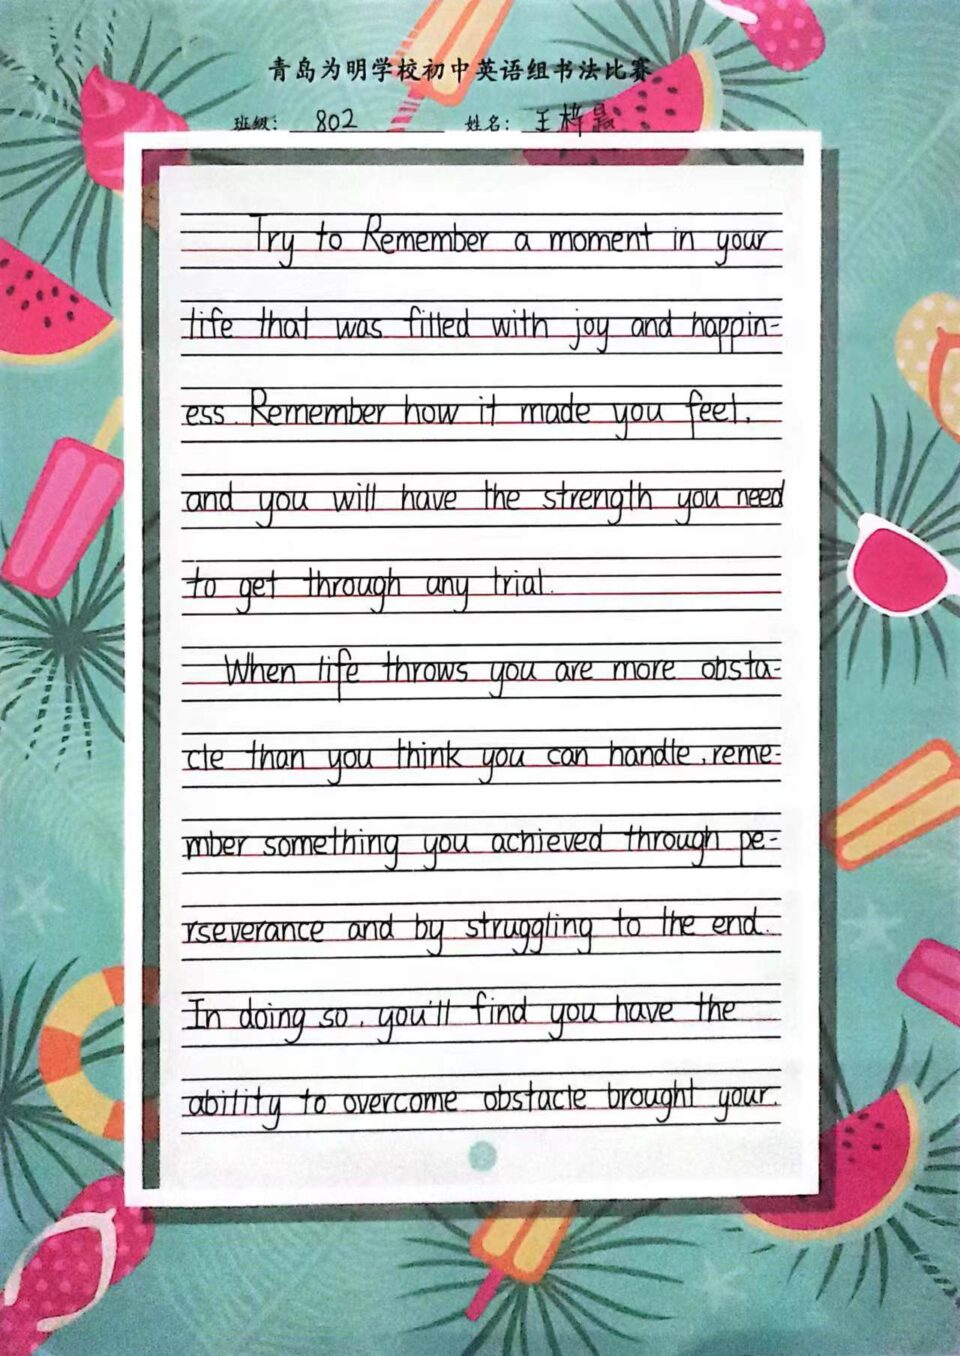 青岛为明学校初中英语组书法比赛
班级: 802 姓名: 王桦晨
Try to Remember a moment in your
life that was filled with joy and happin-
ess. Remember how it made you feel,
and you will have the strength you need
to get through any trial.
When life throws you are more obsta-
cle than you think you can handle, reme-
mber something you achieved through pe-
rseverance and by struggling to the end.
In doing so, you'll find you have the
ability to overcome obstacle brought your.